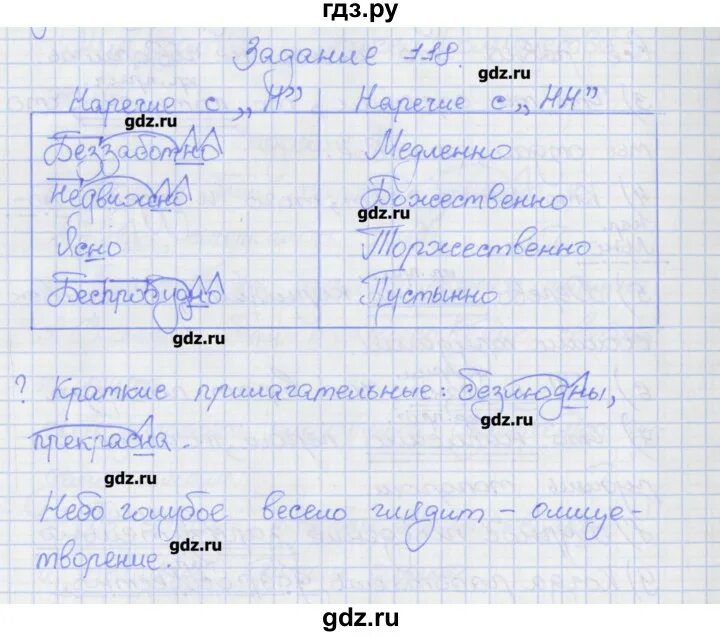 гдз.ру
Задание 118.
gdz.ru
Наречие с „Н” Наречие с „НН”
gdz.ru
Беззаботно Медленно
Недвижно Божественно
gdz.ru
Ясно Торжественно
Беспробудно Пустынно
gdz.ru
? Краткие прилагательные: безлюдны,
gdz.ru
прекрасна.
gdz.ru
Небо голубое весело глядит – олице-
gdz.ru
творение.
gdz.ru